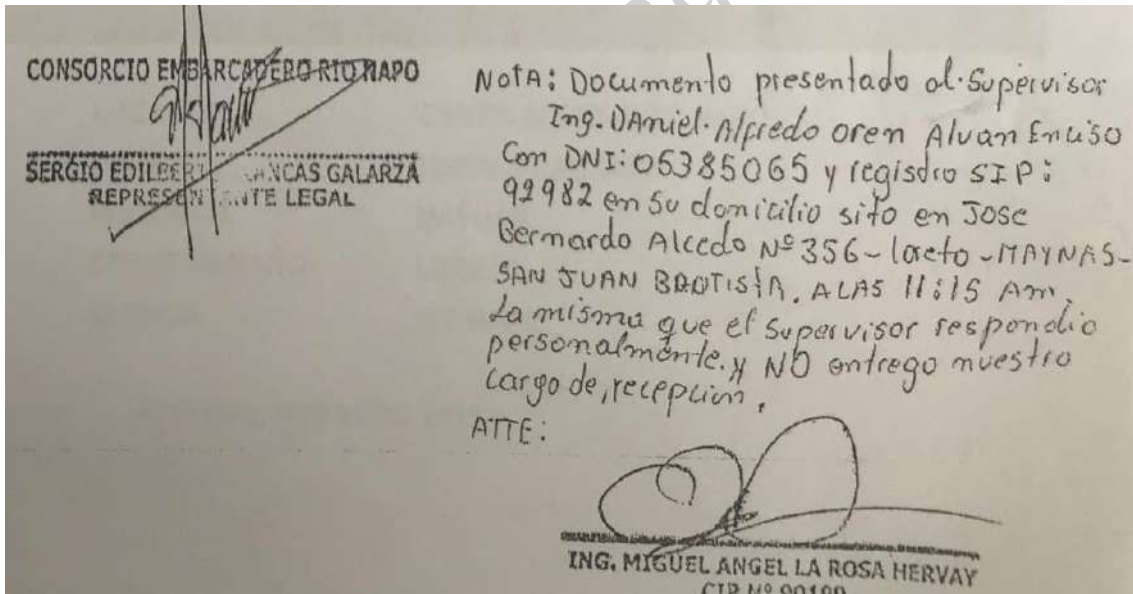 CONSORCIO EMBARCADERO RIO NAPO
SERGIO EDILBERTO GALARZA
REPRESENTANTE LEGAL
NOTA: Documento presentado al Supervisor
Ing. DAniel Alfredo oren Alvan Enciso
Con DNI: 05385065 y registro SIP:
92982 en su domicilio sito en Jose
Bernardo Alcedo Nº 356 - loreto - MAYNAS -
SAN JUAN BAOTISTA. A LAS 11:15 Am.
La misma que el supervisor respondio
personalmente. y NO entrego nuestro
cargo de, recepcion.
ATTE:
ING. MIGUEL ANGEL LA ROSA HERVAY
CIP Nº